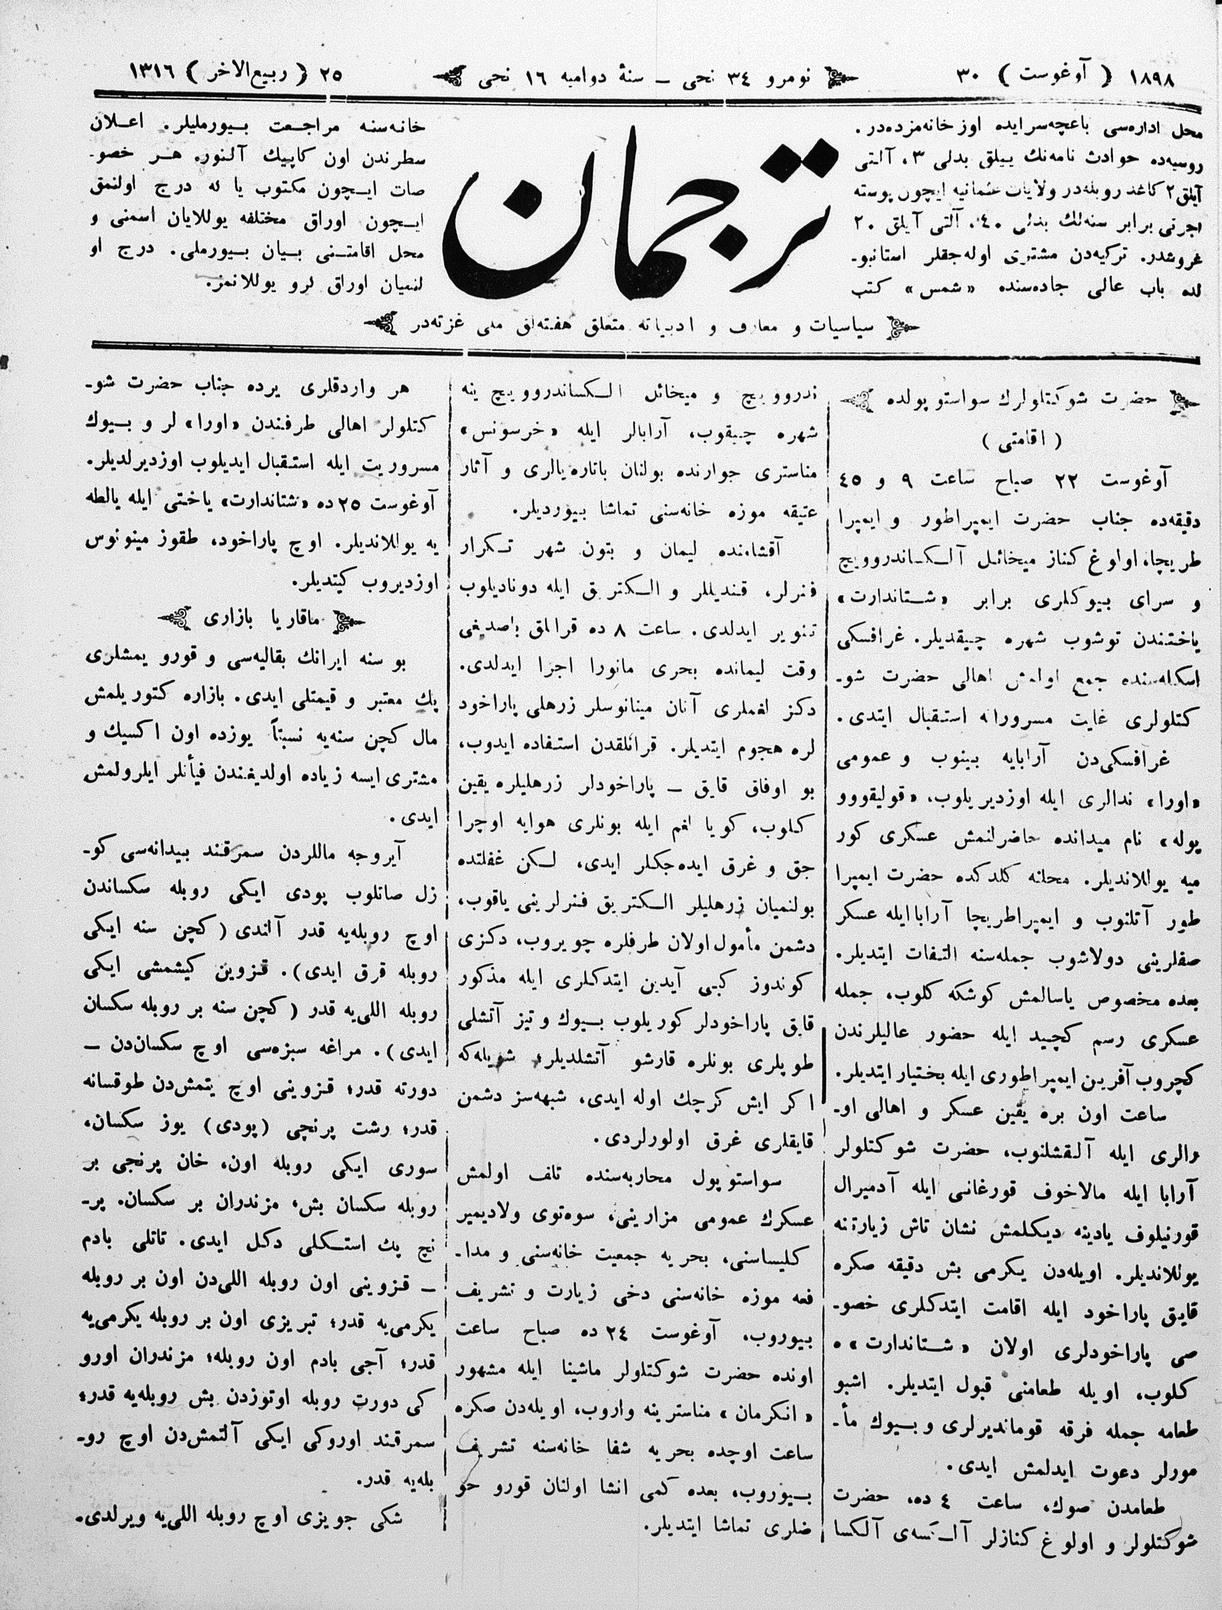 ١٨٩٨ ( آوغوست ) ٣٠
نومرو ٣٤ نحی — سنهٔ دوامیه ١٦ نحی
٢٥ ( ربیع الاخر ) ١٣١٦
محل ادارەسی باغچەسرایده اوز خانەمزدەدر.
روسیەده حوادث نامەنك ییللق بدلی ٣، آلتی
آیلق ٢ كاغد روبلەدر ولایات عثمانیه ایچون پوسته
اجرتی برابر سنەلك بدلی ٤٠، آلتی آیلق ٢٠
غروشدر. تركیەدن مشتری اولەجقلر استانبو-
لده باب عالی جادەسنده «شمس» كتب
ترجمان
خانەسنه مراجعت بیورملیلر. اعلان
سطرندن اون كاپیك آلنور. هر خصو-
صات ایچون مكتوب یا له درج اولنمق
ایچون اوراق مختلفه یوللایان اسمنی و
محل اقامتنی بیان بیورملی. درج او
لنمیان اوراق گرو یوللانمز.
سیاسیات و معارف و ادبیاته متعلق هفتەلق ملی غزتەدر
حضرت شوكتلولرك سواستوپولده
( اقامتی )
آوغوست ٢٢ صباح ساعت ٩ و ٤٥
دقیقەده جناب حضرت ایمپراطور و ایمپرا
طریچا، اولوغ كناز میخائل آلكساندروویچ
و سرای بیوكلری برابر «شتاندارت»
یاختندن توشوب شهره چیقدیلر. غرافسكی
اسكلەسنده جمع اولمش اهالی حضرت شو-
كتلولری غایت مسرورانه استقبال ایتدی.
غرافسكی‌دن آرابایه بینوب و عمومی
«اورا» ندالری ایله اوزدیریلوب، «قولیقووو
پوله» نام میدانده حاضرلنمش عسكری كور
میه یوللاندیلر. محلنه كلدكده حضرت ایمپرا
طور آتلنوب و ایمپراطریچا آرابا ایله عسكر
صفلرینی دولاشوب جملەسنه التفات ایتدیلر.
بعده مخصوص یاسالمش كوشكه كلوب، جمله
عسكری رسم كچید ایله حضور عالیلرندن
كچروب آفرین ایمپراطوری ایله بختیار ایتدیلر.
ساعت اون بره یقین عسكر و اهالی او-
رالری ایله آلقشلنوب، حضرت شوكتلولر
آرابا ایله مالاخوف قورغانی ایله آدمیرال
قورنیلوف یادینه دیكلمش نشان تاش زیارتنه
یوللاندیلر. اویلەدن یكرمی بش دقیقه صكره
قایق پاراخود ایله اقامت ایتدكلری خصو-
صی پاراخودلری اولان «شتاندارت» ه
كلوب، اویله طعامنی قبول ایتدیلر. اشبو
طعامه جمله فرقه قوماندیرلری و بیوك مأ-
مورلر دعوت ایدلمش ایدی.
طعامدن صوك، ساعت ٤ ده، حضرت
شوكتلولر و اولوغ كنازلر آلكسەی آلكسا
ندروویچ و میخائل الكساندروویچ ینه
شهره چیقوب، آرابالر ایله «خرسونس»
مناستری جوارنده بولنان باتارەیالری و آثار
عتیقه موزه خانەسنی تماشا بیوردیلر.
آقشامنده لیمان و بتون شهر تكرار
فنرلر، قندیللر و الكتریق ایله دونادیلوب
تنویر ایدلدی. ساعت ٨ ده قرالق باصدیغی
وقت لیمانده بحری مانورا اجرا ایدلدی.
دكز لغملری آتان مینانوسلر زرهلی پاراخود
لره هجوم ایتدیلر. قرالقدن استفاده ایدوب،
بو اوفاق قایق — پاراخودلر زرهلیلره یقین
كلوب، كویا لغم ایله بونلری هوایه اوچرا
جق و غرق ایدەجكلر ایدی، لكن غفلتده
بولنمیان زرهلیلر الكتریق فنرلرینی یاقوب،
دشمن مأمول اولان طرفلره چویروب، دكزی
كوندوز كبی آیدین ایتدكلری ایله مذكور
قایق پاراخودلر كوریلوب بیوك و تیز آتشلی
طوپلری بونلره قارشو آتشلدیلر؛ شویلەكه
اكر ایش كرچك اوله ایدی، شبهەسز دشمن
قایقلری غرق اولورلردی.
سواستوپول محاربەسنده تلف اولمش
عسكرك عمومی مزارینی، سوەتوی ولادیمیر
كلیساسنی، بحریه جمعیت خانەسنی و مدا-
فعه موزه خانەسنی دخی زیارت و تشریف
بیوروب، آوغوست ٢٤ ده صباح ساعت
اونده حضرت شوكتلولر ماشینا ایله مشهور
«انكرمان» مناسترینه واروب، اویلەدن صكره
ساعت اوچده بحریه شفا خانەسنه تشریف
بیوروب، بعده كمی انشا اولنان قورو حو
ضلری تماشا ایتدیلر.
هر واردقلری یرده جناب حضرت شو-
كتلولر اهالی طرفندن «اورا» لر و بیوك
مسروریت ایله استقبال ایدیلوب اوزدیرلدیلر.
آوغوست ٢٥ ده «شتاندارت» یاختی ایله یالطه
یه یوللاندیلر. اوچ پاراخود، طقوز مینونوس
اوزدیروب كیتدیلر.
ماقاریا بازاری
بو سنه ایرانك بقالیەسی و قورو یمشلری
پك معتبر و قیمتلی ایدی. بازاره كتوریلمش
مال كچن سنەیه نسبتاً یوزده اون اكسیك و
مشتری ایسه زیاده اولدیغندن فیأتلر ایلرولمش
ایدی.
آیروجه ماللردن سمرقند بیدانەسی كو-
زل صاتلوب پودی ایكی روبله سكساندن
اوچ روبلەیه قدر آلندی (كچن سنه ایكی
روبله قرق ایدی). قزوین كیشمشی ایكی
روبله اللی‌یه قدر (كچن سنه بر روبله سكسان
ایدی). مراغه سبزەسی اوچ سكسان‌دن —
دورته قدر؛ قزوینی اوچ یتمش‌دن طوقسانه
قدر؛ رشت پرنچی (پودی) یوز سكسان،
سوری ایكی روبله اون، خان پرنجی بر
روبله سكسان بش، مزندران بر سكسان. پر-
نچ پك استكلی دكل ایدی. تاتلی بادم
— قزوینی اون روبله اللی‌دن اون بر روبله
یكرمی‌یه قدر؛ تبریزی اون بر روبله یكرمی‌یه
قدر؛ آجی بادم اون روبله؛ مزندران اورو
كی دورت روبله اوتوزدن بش روبلەیه قدر؛
سمرقند اوروكی ایكی آلتمش‌دن اوچ رو-
بلەیه قدر.
شكی جویزی اوچ روبله اللی‌یه ویرلدی.